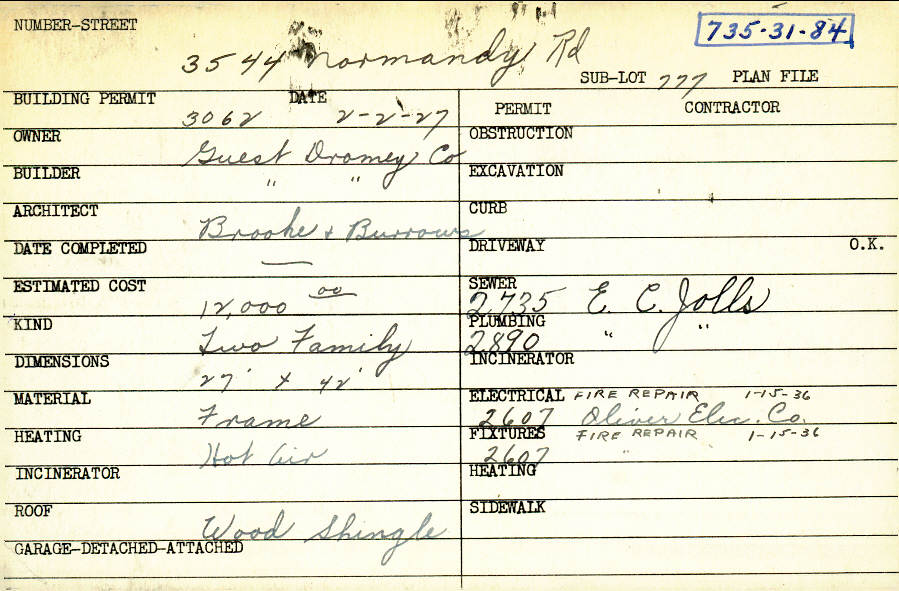 NUMBER-STREET
735-31-84
3544 Normandy Rd
SUB-LOT 777 PLAN FILE
BUILDING PERMIT 3062 DATE 2-2-27
OWNER Guest Dromey Co
BUILDER " "
ARCHITECT Brooke + Burrows
DATE COMPLETED —
ESTIMATED COST 12,000 00
KIND Two Family
DIMENSIONS 27' x 42'
MATERIAL Frame
HEATING Hot Air
INCINERATOR
ROOF Wood Shingle
GARAGE-DETACHED-ATTACHED
PERMIT CONTRACTOR
OBSTRUCTION
EXCAVATION
CURB
DRIVEWAY O.K.
SEWER 2735 E. C. Jolls
PLUMBING 2890 " "
INCINERATOR
ELECTRICAL FIRE REPAIR 1-15-36
2607 Oliver Elec. Co.
FIXTURES FIRE REPAIR 1-15-36
2607 "
HEATING
SIDEWALK